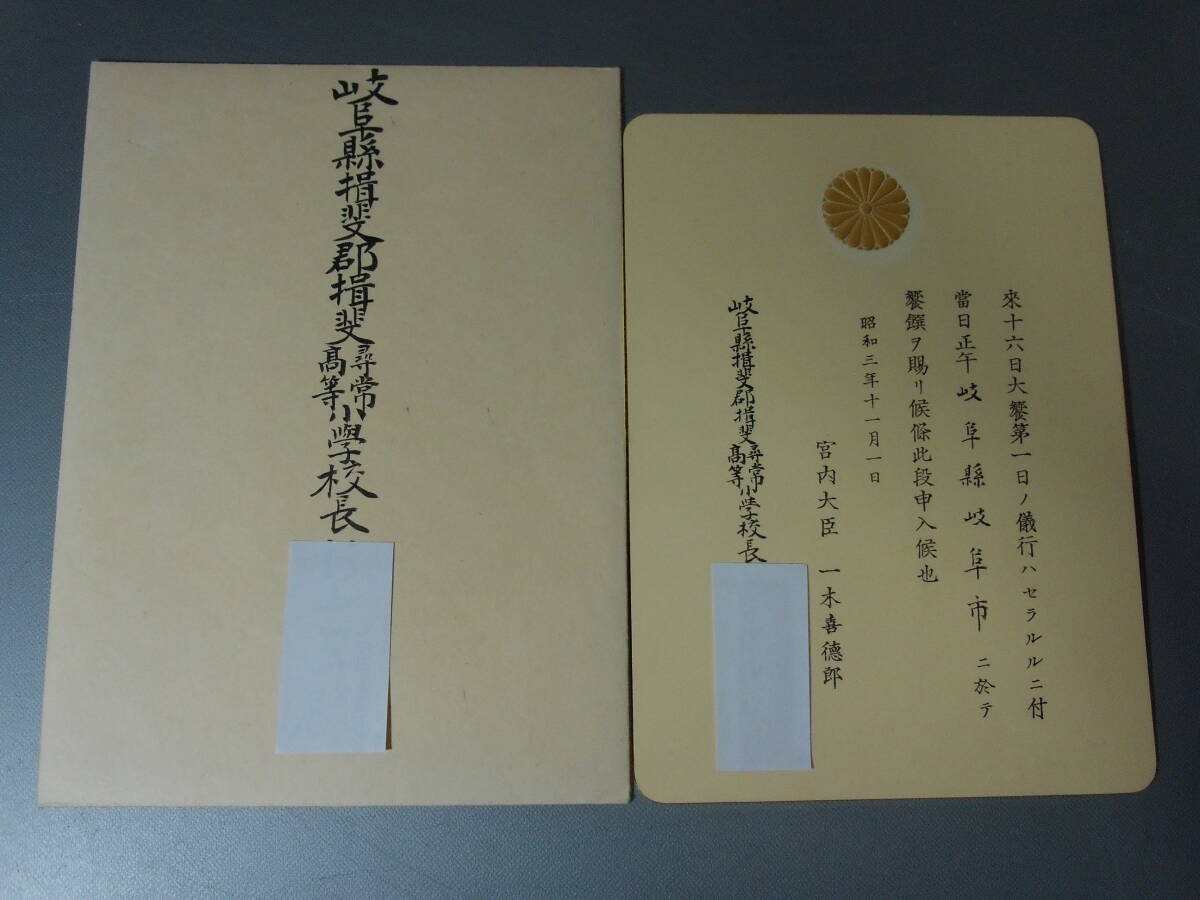 岐阜縣揖斐郡揖斐尋常高等小學校長
來十六日大饗第一日ノ儀行ハセラルルニ付
當日正午岐阜縣岐阜市ニ於テ
饗饌ヲ賜リ候條此段申入候也
昭和三年十一月一日
宮内大臣 一木喜德郎
岐阜縣揖斐郡揖斐尋常高等小學校長